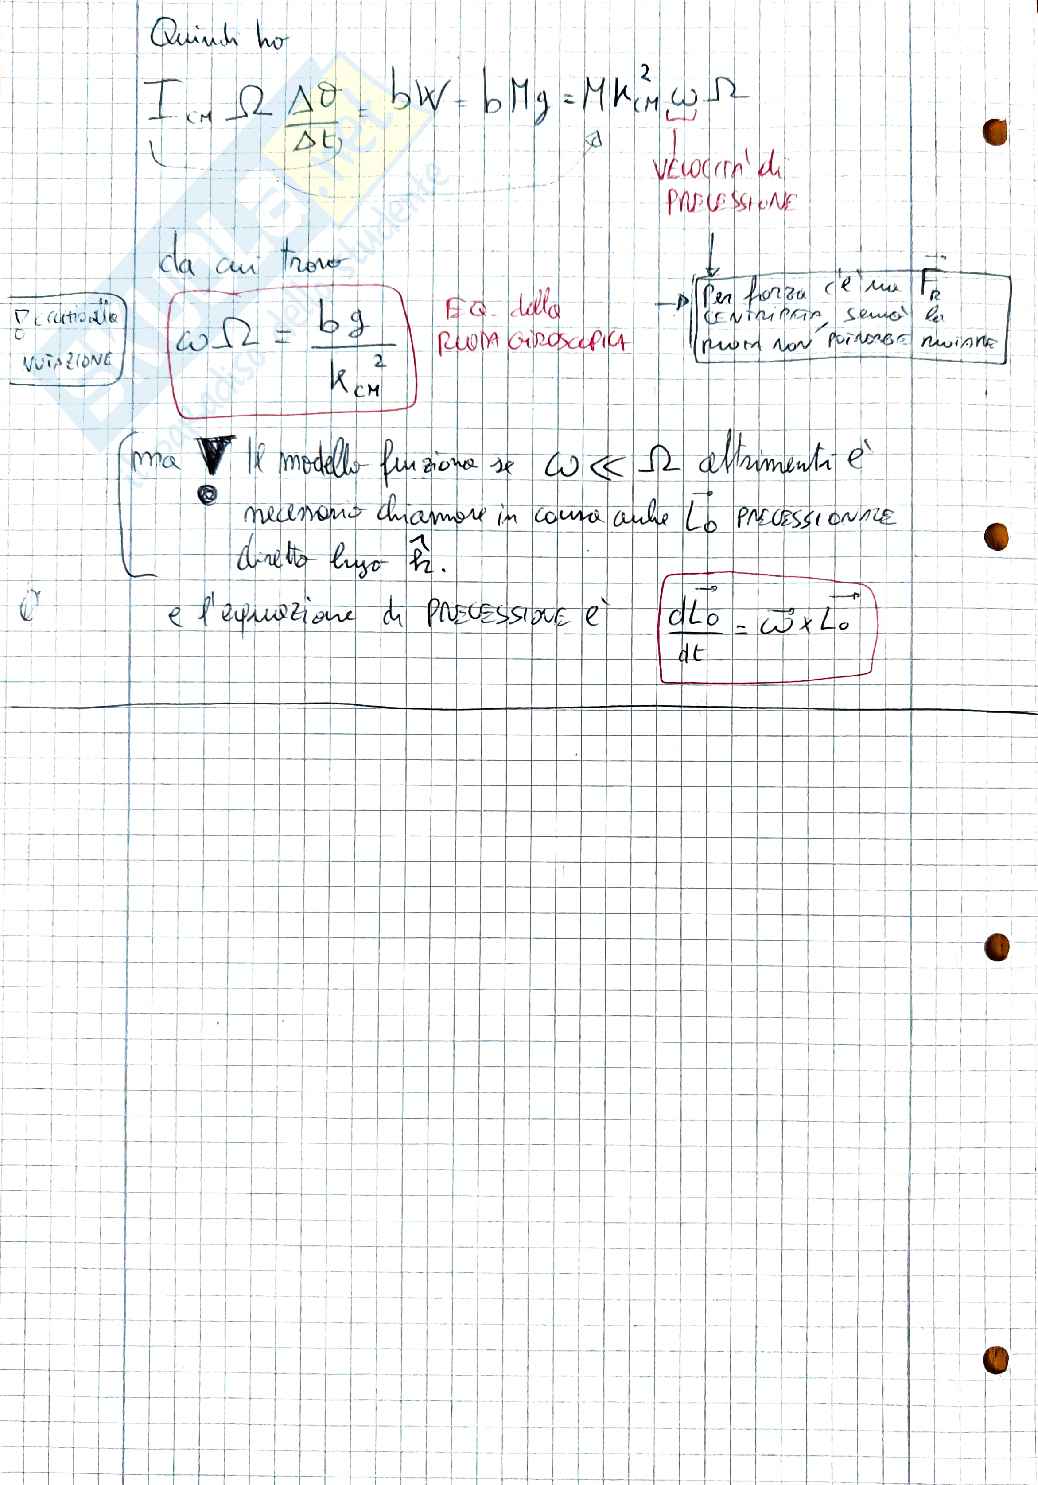 Quindi ho
I_CM Ω Δθ/Δt = bW = bMg = M k²_CM ω Ω
VELOCITÀ di
PRECESSIONE
da cui trovo
ωΩ = bg / k_CM²
EQ. della
RUOTA GIROSCOPICA
Per forza c'è una F_R
CENTRIPETA, sennò la
RUOTA NON POTREBBE RUOTARE
NUTAZIONE
ma ! Il modello funziona se ω ≪ Ω altrimenti è
necessario chiamare in causa anche L₀ PRECESSIONALE
diretto lungo k̂.
e l'equazione di PRECESSIONE è
dL₀/dt = ω × L₀
SKUOLA.net